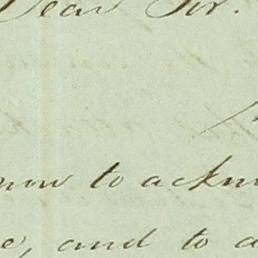 Dear Sir.
now to ackn
e, and to a